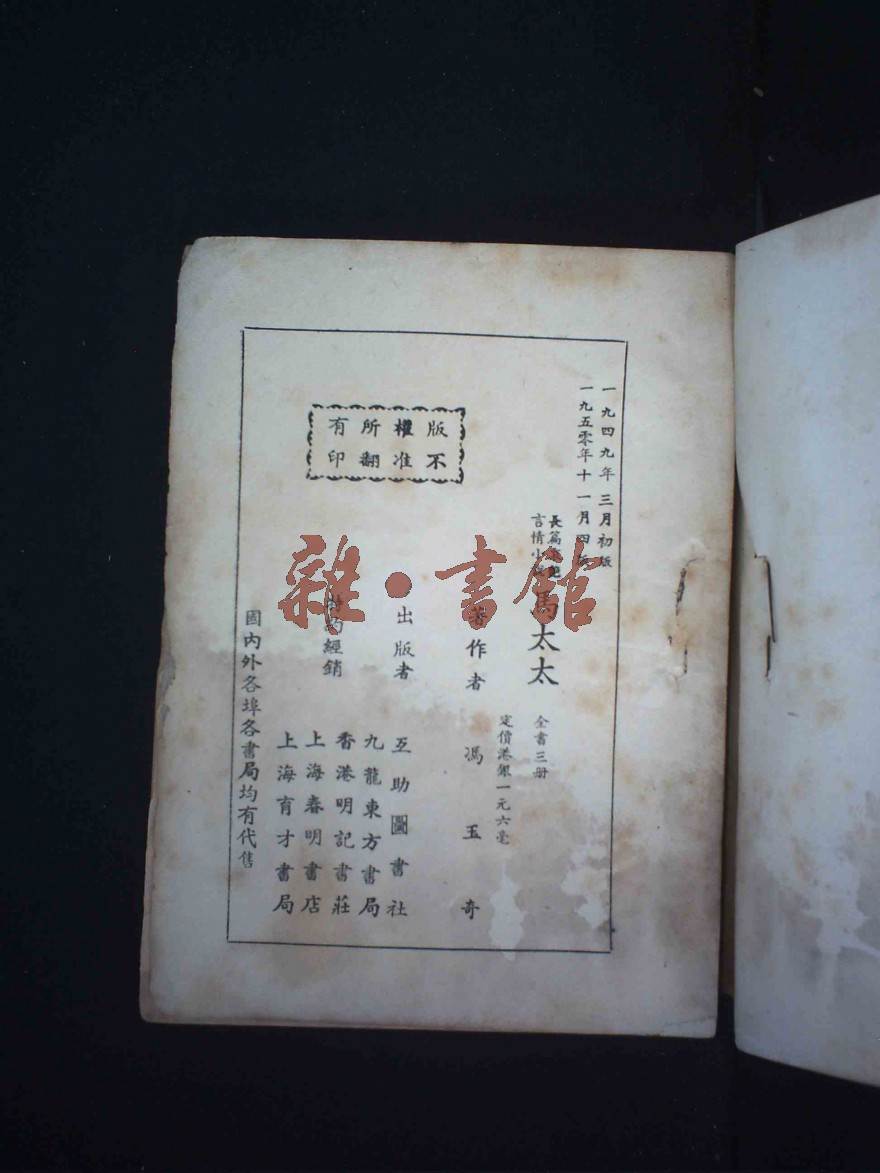 一九四九年三月初版
一九五零年十一月四版
長篇
言情小
馬太太
全書三册
定價港銀一元六毫
著作者 馮玉奇
出版者 互助圖書社
特約經銷
九龍東方書局
香港明記書莊
上海春明書店
上海育才書局
國內外各埠各書局均有代售
版權所有
不准翻印
雜·書館